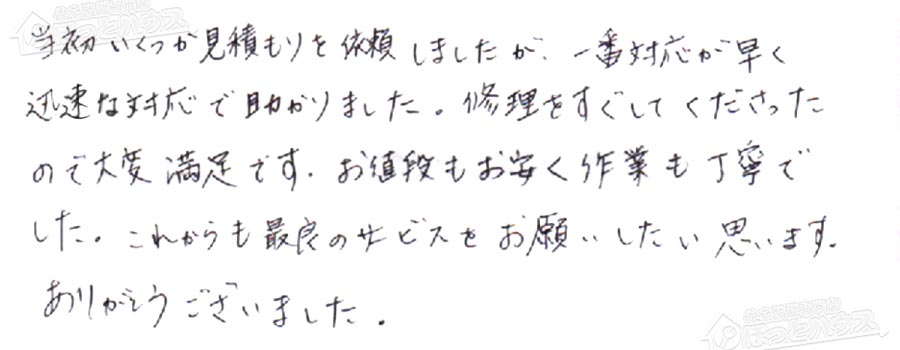 当初いくつか見積もりを依頼しましたが、一番対応が早く
迅速な対応で助かりました。修理をすぐしてくださった
ので大変満足です。お値段もお安く作業も丁寧で
した。これからも最良のサービスをお願いしたい思います。
ありがとうございました。
ほっとハウス